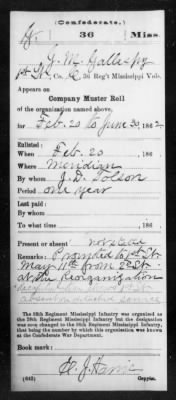 (Confederate.)
36 Miss.
J. M. Gallespy
1st Lt., Co. 36 Reg't Mississippi Vols.
Appears on
Company Muster Roll
of the organization named above,
for Feb. 20 to June 30, 1862.
Enlisted:
When Feb. 20, 186 .
Where Meridian
By whom J. D. Tolson
Period one year
Last paid:
By whom
To what time , 186 .
Present or absent not stated
Remarks: Promoted to 1st Lt
May 11th from 2d Lt.
at the reorganization
absent detached service
The 36th Regiment Mississippi Infantry was organized as
the 36th Regiment Mississippi Infantry, but the designation
was soon changed to the 36th Regiment Mississippi Infantry,
that being the number by which this organization was known at
the Confederate War Department.
Book mark:
(642) Copyist.